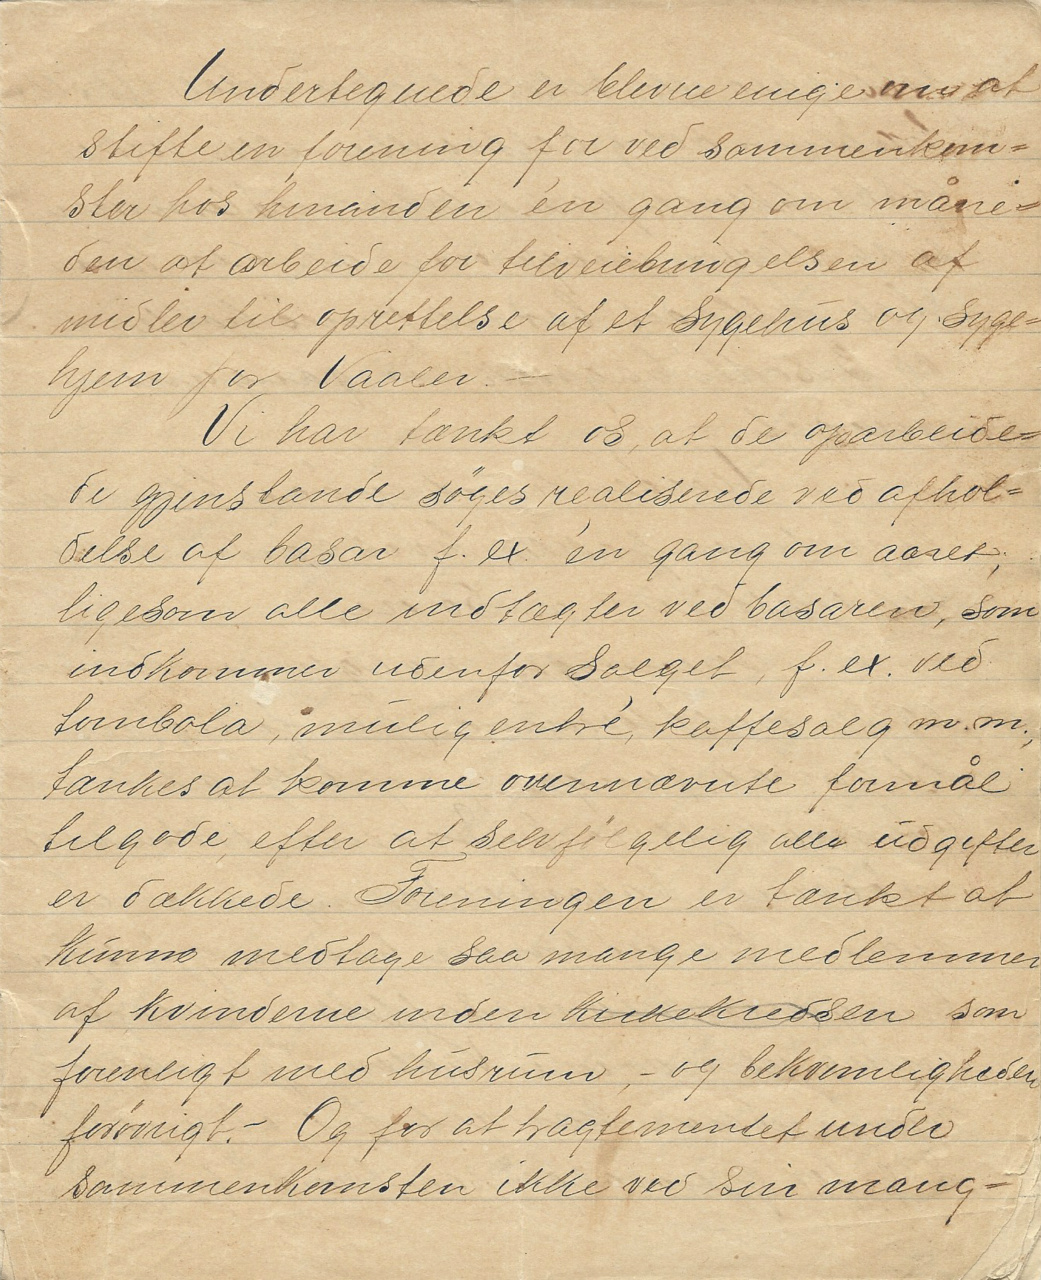 Undertegnede er blevne enige om at
stifte en forening for ved sammenkom=
ster hos hinanden én gang om måne=
den at arbeide for tilveiebringelsen af
midler til oprettelse af et Sygehus og Syge=
hjem for Vaaler. —
Vi har tænkt os, at de oparbeide=
de gjenstande søges realiserede ved afhol=
delse af basar f. ex. én gang om aaret,
ligesom alle indtægter ved basaren, som
indkommer udenfor Salget, f. ex. ved
tombola, mulig entré, kaffesalg m.m.,
tænkes at komme ovennævnte formål
tilgode, efter at selvfølgelig alle udgifter
er dækkede. Foreningen er tænkt at
kunne medtage saa mange medlemmer
af kvinderne inden Kirkekredsen som
foreneligt med husrum, - og bekvemligheden
forøvrigt. - Og for at tragtementet under
sammenkomsten ikke ved sin mang=